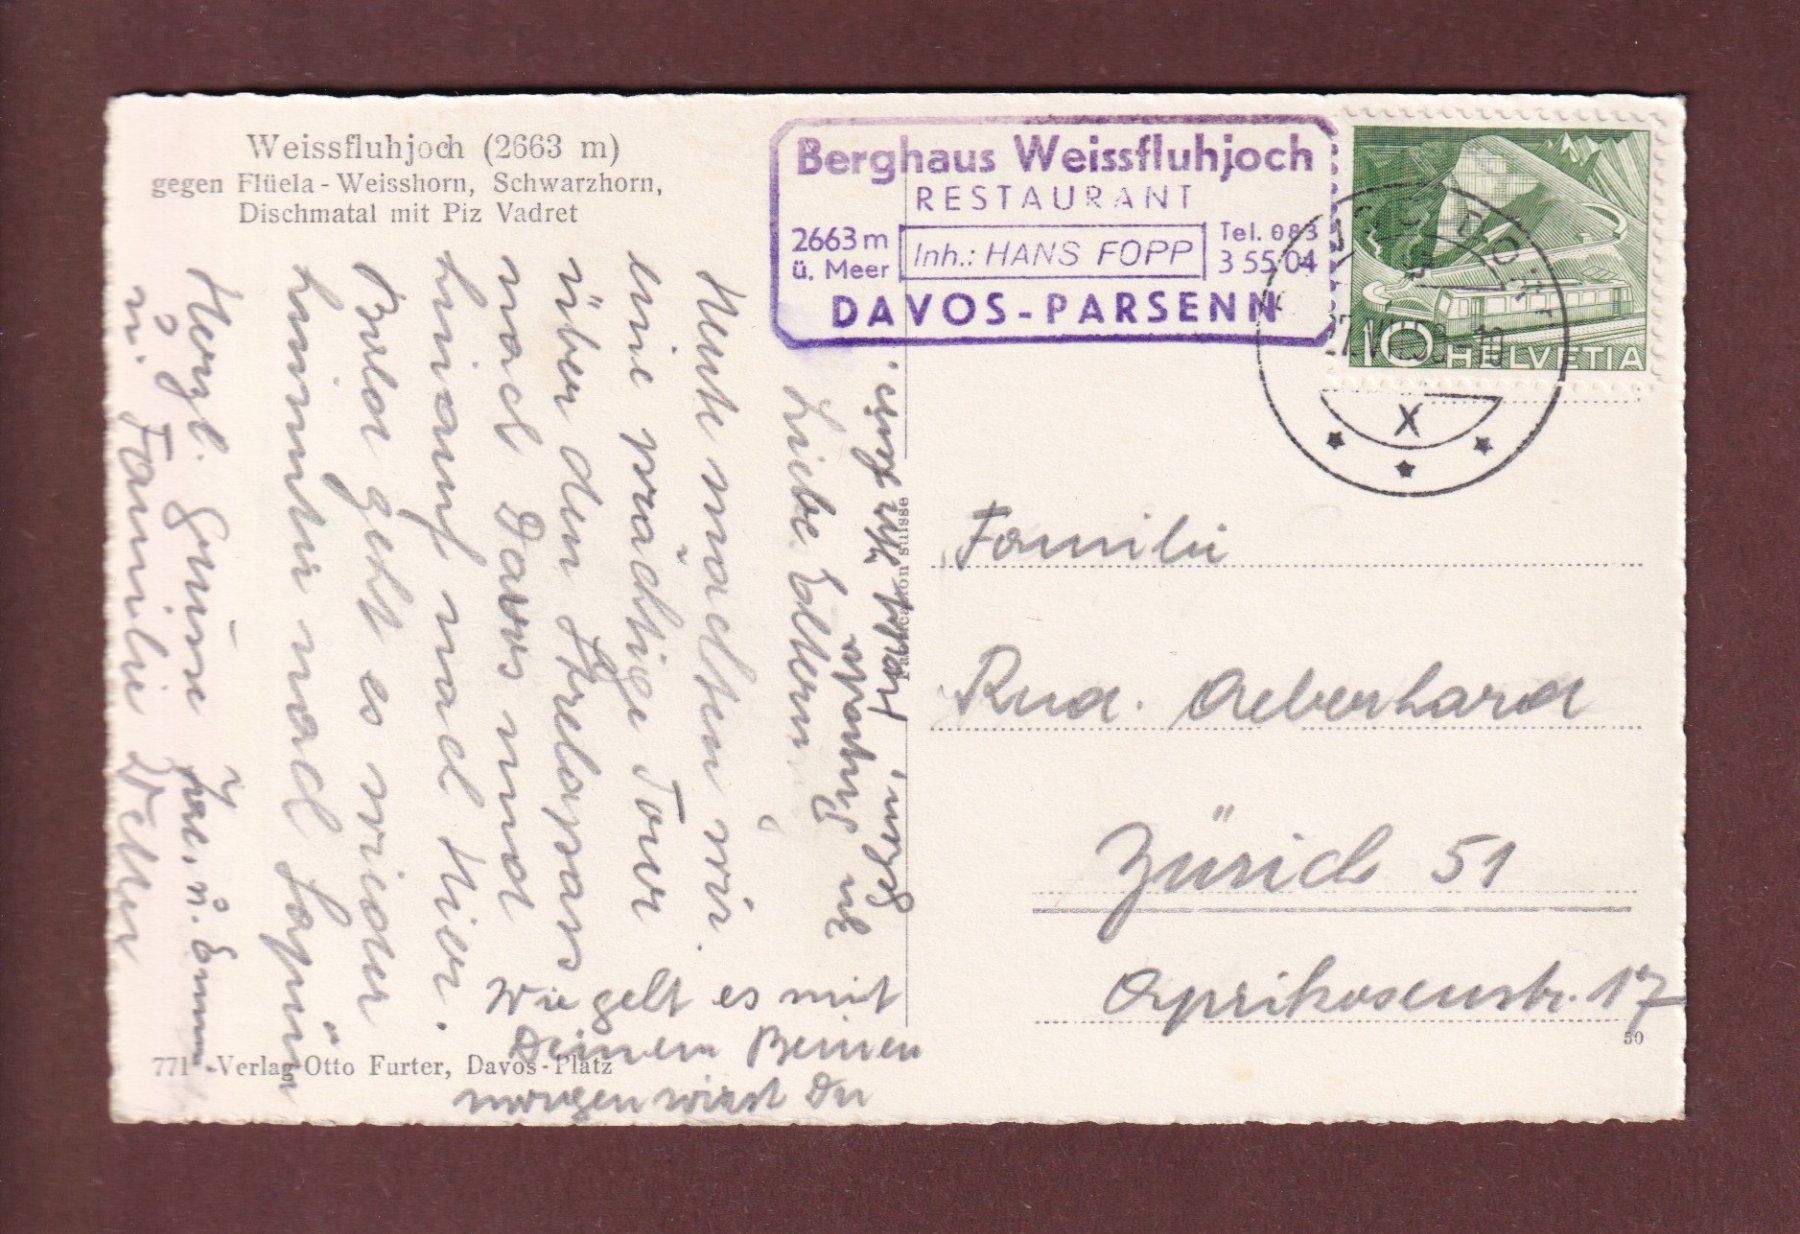 Weissfluhjoch (2663 m)
gegen Flüela-Weisshorn, Schwarzhorn,
Dischmatal mit Piz Vadret
Berghaus Weissfluhjoch
RESTAURANT
2663 m
ü. Meer
Inh.: HANS FOPP
Tel. 083
3 55 04
DAVOS-PARSENN
10 HELVETIA
X
Liebe Eltern
Heute machten wir
eine prächtige Tour
über den Strelapass
nach Davos und
hinauf nach hier.
Bald geht es wieder
hinunter nach
Herzl. Grüsse
Familie
Wie geht es mit
Deinem Beinen
morgen wirst Du
gehen, Habt Ihr fein.
Familie
Rud. Aeberhard
Zürich 51
Aprikosenstr. 17
Fabrication suisse
50
771 - Verlag Otto Furter, Davos-Platz